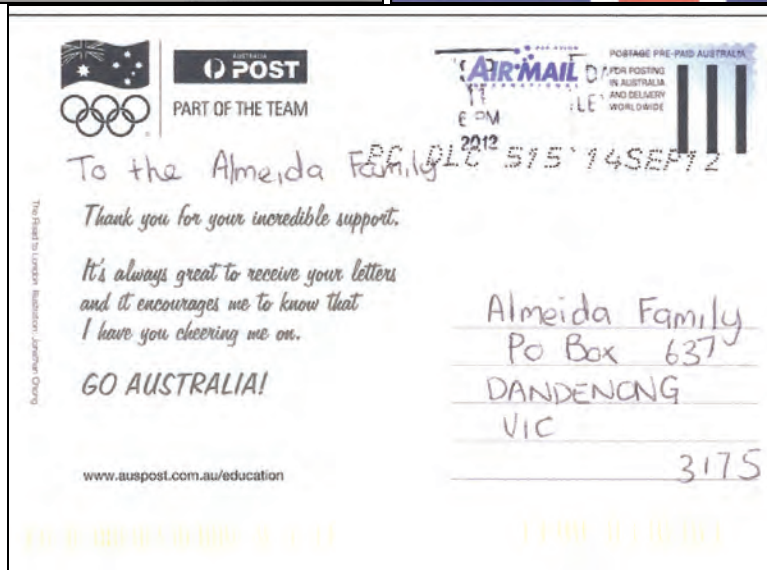 AUSTRALIA
POST
PART OF THE TEAM
PAR AVION
AIR MAIL
INTERNATIONAL
POSTAGE PRE-PAID AUSTRALIA
FOR POSTING
IN AUSTRALIA
AND DELIVERY
WORLDWIDE
6 PM
2012
515 14SEP12
To the Almeida Family
Thank you for your incredible support.
It's always great to receive your letters
and it encourages me to know that
I have you cheering me on.
GO AUSTRALIA!
www.auspost.com.au/education
The Road to London. Illustration: Jonathan Chong
Almeida Family
Po Box 637
DANDENONG
VIC
3175